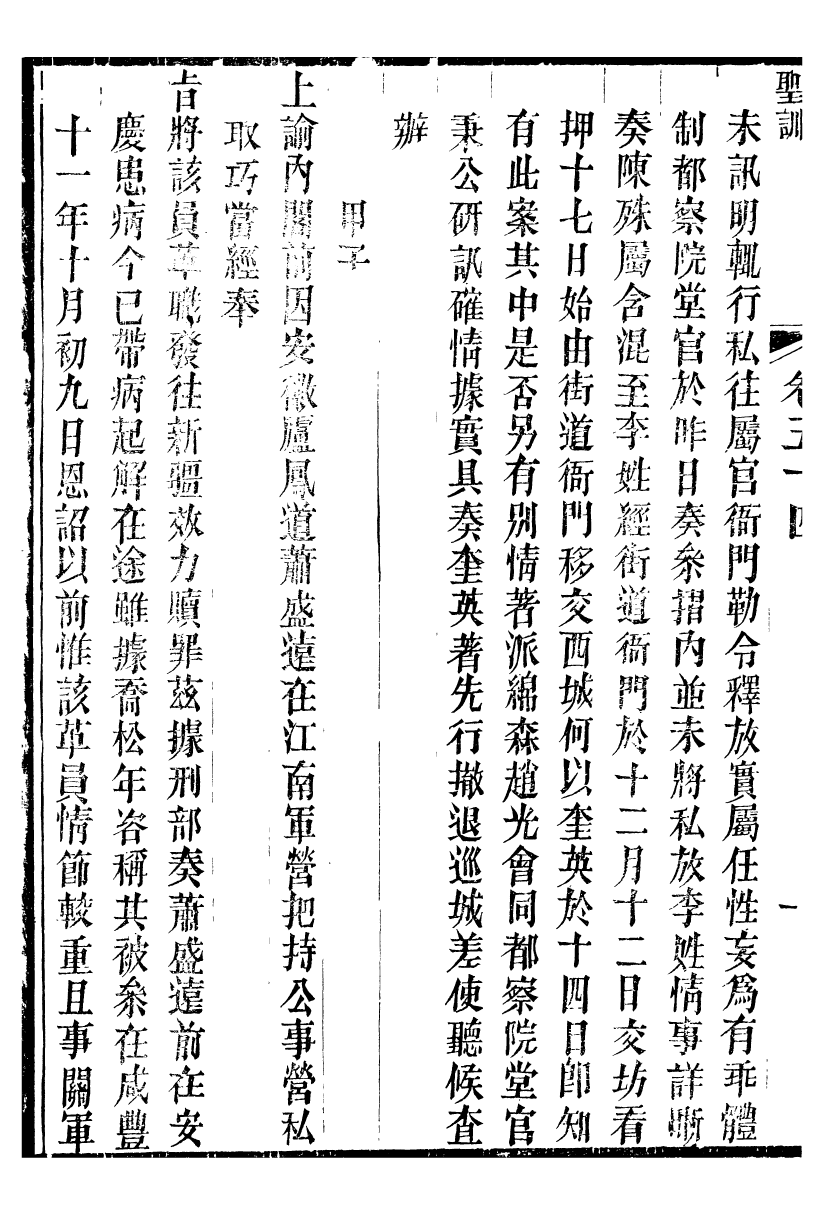 聖訓 卷五十四 一
未訊明輒行私往屬官衙門勒令釋放實屬任性妄爲有乖體
制都察院堂官於昨日奏叅摺內並未將私放李姓情事詳晰
奏陳殊屬含混至李姓經街道衙門於十二月十二日交坊看
押十七日始由街道衙門移交西城何以奎英於十四日卽知
有此案其中是否另有別情著派綿森趙光會同都察院堂官
秉公研訊確情據實具奏奎英著先行撤退巡城差使聽候查
辦
甲子
上諭內閣前因安徽廬鳳道蕭盛遠在江南軍營把持公事營私
取巧當經奉
旨將該員革職發往新疆效力贖罪茲據刑部奏蕭盛遠前在安
慶患病今已帶病起解在途雖據喬松年咨稱其被叅在咸豐
十一年十月初九日恩詔以前惟該革員情節較重且事關軍